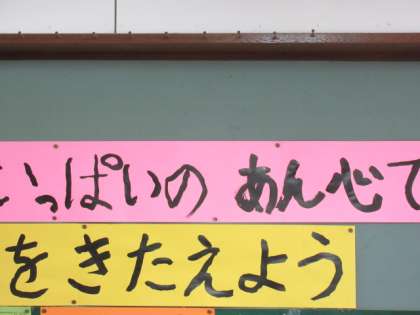 いっぱいの あん心で
をきたえよう